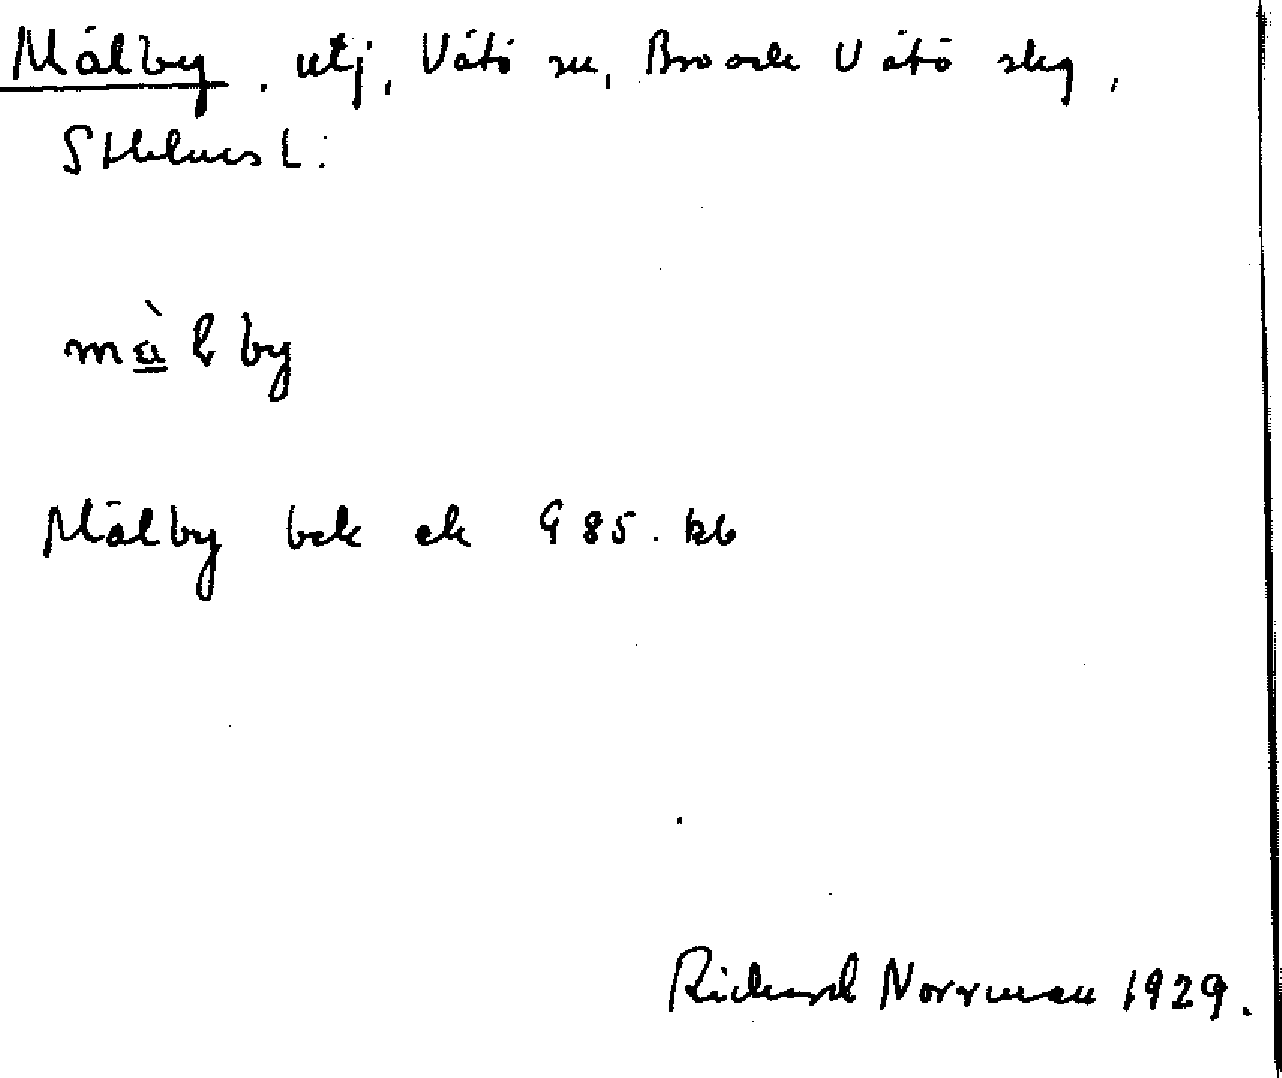 Målby, utj, Vätö sn, Bro och Vätö slg,
Sthlms L:
må̀lby
Målby bek ek 985. kb
Richard Norrman 1929.